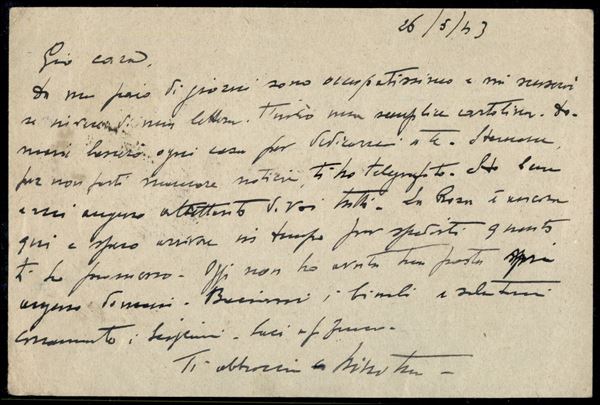 26/5/43
Gio cara,
Da un paio di giorni sono occupatissimo e mi
di una lettera. T'invio una semplice cartolina. Do-
mani lascerò ogni cosa per dedicarmi a te. Stamane,
per non farti mancare notizie, ti ho telegrafato. Sto bene
e mi auguro altrettanto di voi tutti. La Rosa è ancora
qui e spero arrivare in tempo per spedirti quanto
ti ho promesso. Oggi non ho avuto tua posta
domani. Baciami i bimbi e salutami
caramente i
Ti abbraccio